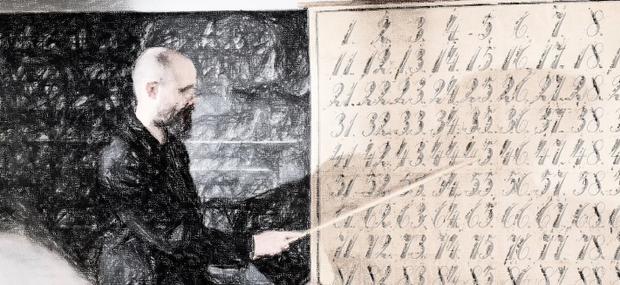 1. 2. 3. 4. 5. 6. 7. 8.
11. 12. 13. 14. 15. 16. 17. 18.
21. 22. 23. 24. 25. 26. 27. 28.
31. 32. 33. 34. 35. 36. 37. 38.
41. 42. 43. 44. 45. 46. 47. 48.
51. 52. 53. 54. 55. 56. 57. 58.
61. 62. 63. 64. 65. 66. 67. 68.
71. 72. 73. 74. 75. 76. 77. 78.
81. 82. 83. 84. 85. 86. 87. 88.